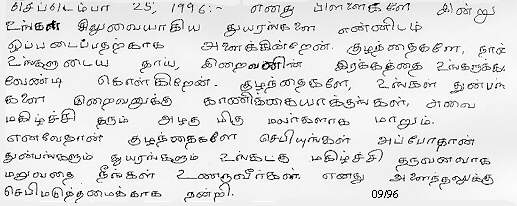 செப்டெம்பர் 25, 1996:- எனது பிள்ளைகளே இன்று
உங்கள் சிலுவையாகிய துயரங்களை என்னிடம்
ஒப்படைப்பதற்காக அழைக்கின்றேன். குழந்தைகளே, நான்
உங்களுடைய தாய், இறைவனின் இரக்கத்தை உங்களுக்கு
வேண்டி கொள்கிறேன். குழந்தைகளே, உங்கள் துன்பங்
களை இறைவனுக்கு காணிக்கையாக்குங்கள், அவை
மகிழ்ச்சி தரும் அழகு மிகு மலர்களாக மாறும்.
எனவேதான் குழந்தைகளே செபியுங்கள் அப்போதுதான்
துன்பங்களும் துயரங்களும் உங்கட்கு மகிழ்ச்சி தருவனவாக
மறுவதை நீங்கள் உணருவீர்கள். எனது அழைத்தலுக்கு
செபிமடுத்தமைக்காக நன்றி.
09/96